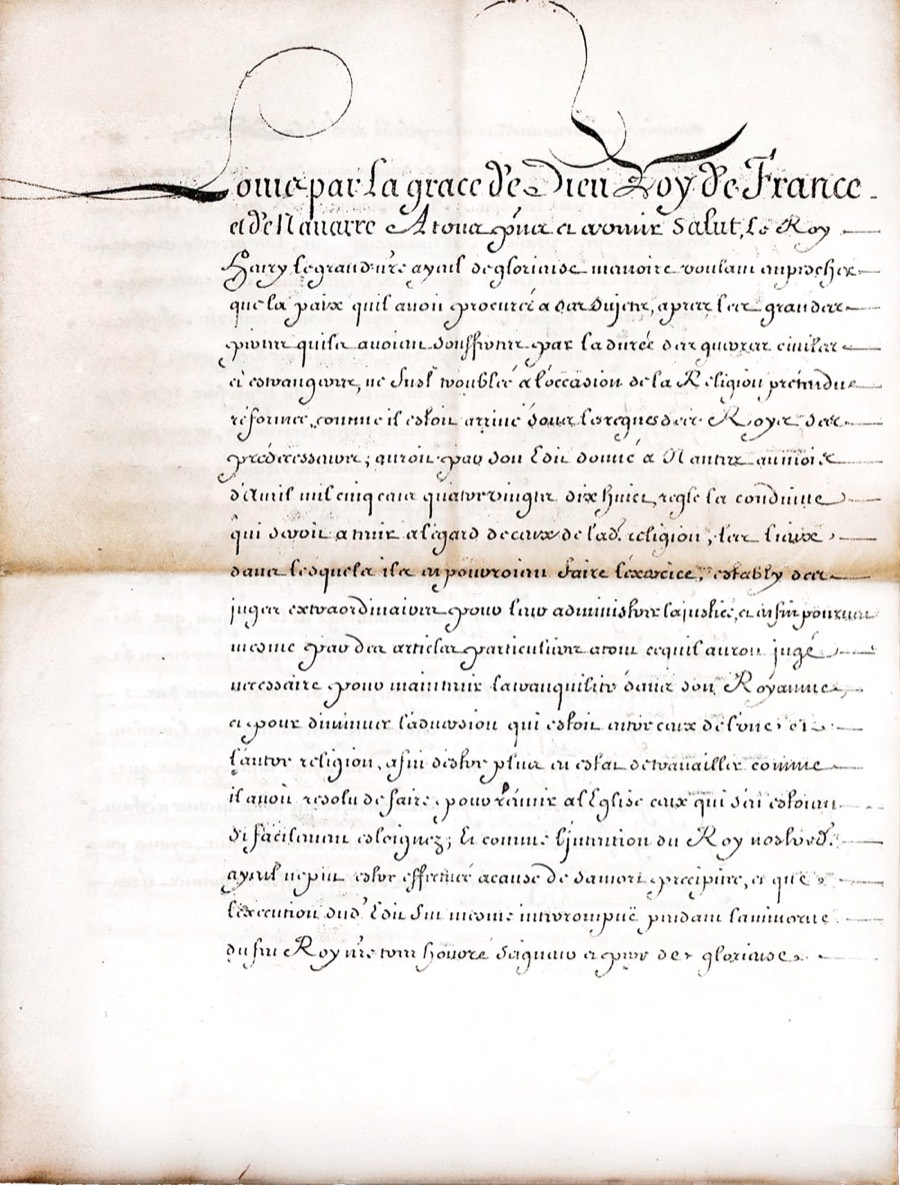 Louis par la grace de Dieu Roy de France
et de Nauarre A tous p̃ns et avenir Salut, Le Roy
Henry le grand nr̃e ayeul de glorieuse memoire voulant empescher
que la paix quil auoit procurée a ses Sujets, apres les grandes
pertes quils auoient souffertes par la durée des guerres ciuiles
et estrangeres, ne fust troublée a l'occasion de la Religion prétendue
réformée, comme il estoit arriué sous les regnes des Roys ses
prédecesseurs; auroit par son Edit donné a Nantes au mois
d'Auril mil cinq cens quatre vingts dix huict, reglé la conduite
qui seroit a tenir a l'égard de ceux de lad. religion, les lieux
dans lesquels ils en pourroient faire l'exercice, estably des
juges extraordinaires pour leur administrer la justice, et enfin pourueu
mesme par des articles particuliers a tout ce quil auroit jugé
necessaire pour maintenir la tranquilité dans son Royaume,
et pour diminuer l'aduersion qui estoit entre ceux de l'une et
l'autre religion, afin d'estre plus en estat de trauailler comme
il auoit resolu de faire, pour réunir a l'Eglise ceux qui s'en estoient
si facilement esloignez; Et comme l'jntention du Roy nostred.
ayeul ne put estre effectuée a cause de sa mort précipitée, et que
l'execution dud. Edit fut mesme interrompuë pendant la minorité
du feu Roy nr̃e tres honoré Seigneur et pere de glorieuse